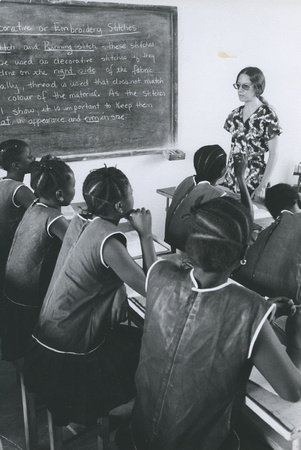 corative or Embroidery Stitches
titch and Running stitch - these stitches
be used as decorative stitches as they
done on the right side of the fabric
ally, thread is used that does not match
colour of the material. As the stitches
l show, it is important to keep them
at in appearance and even in one